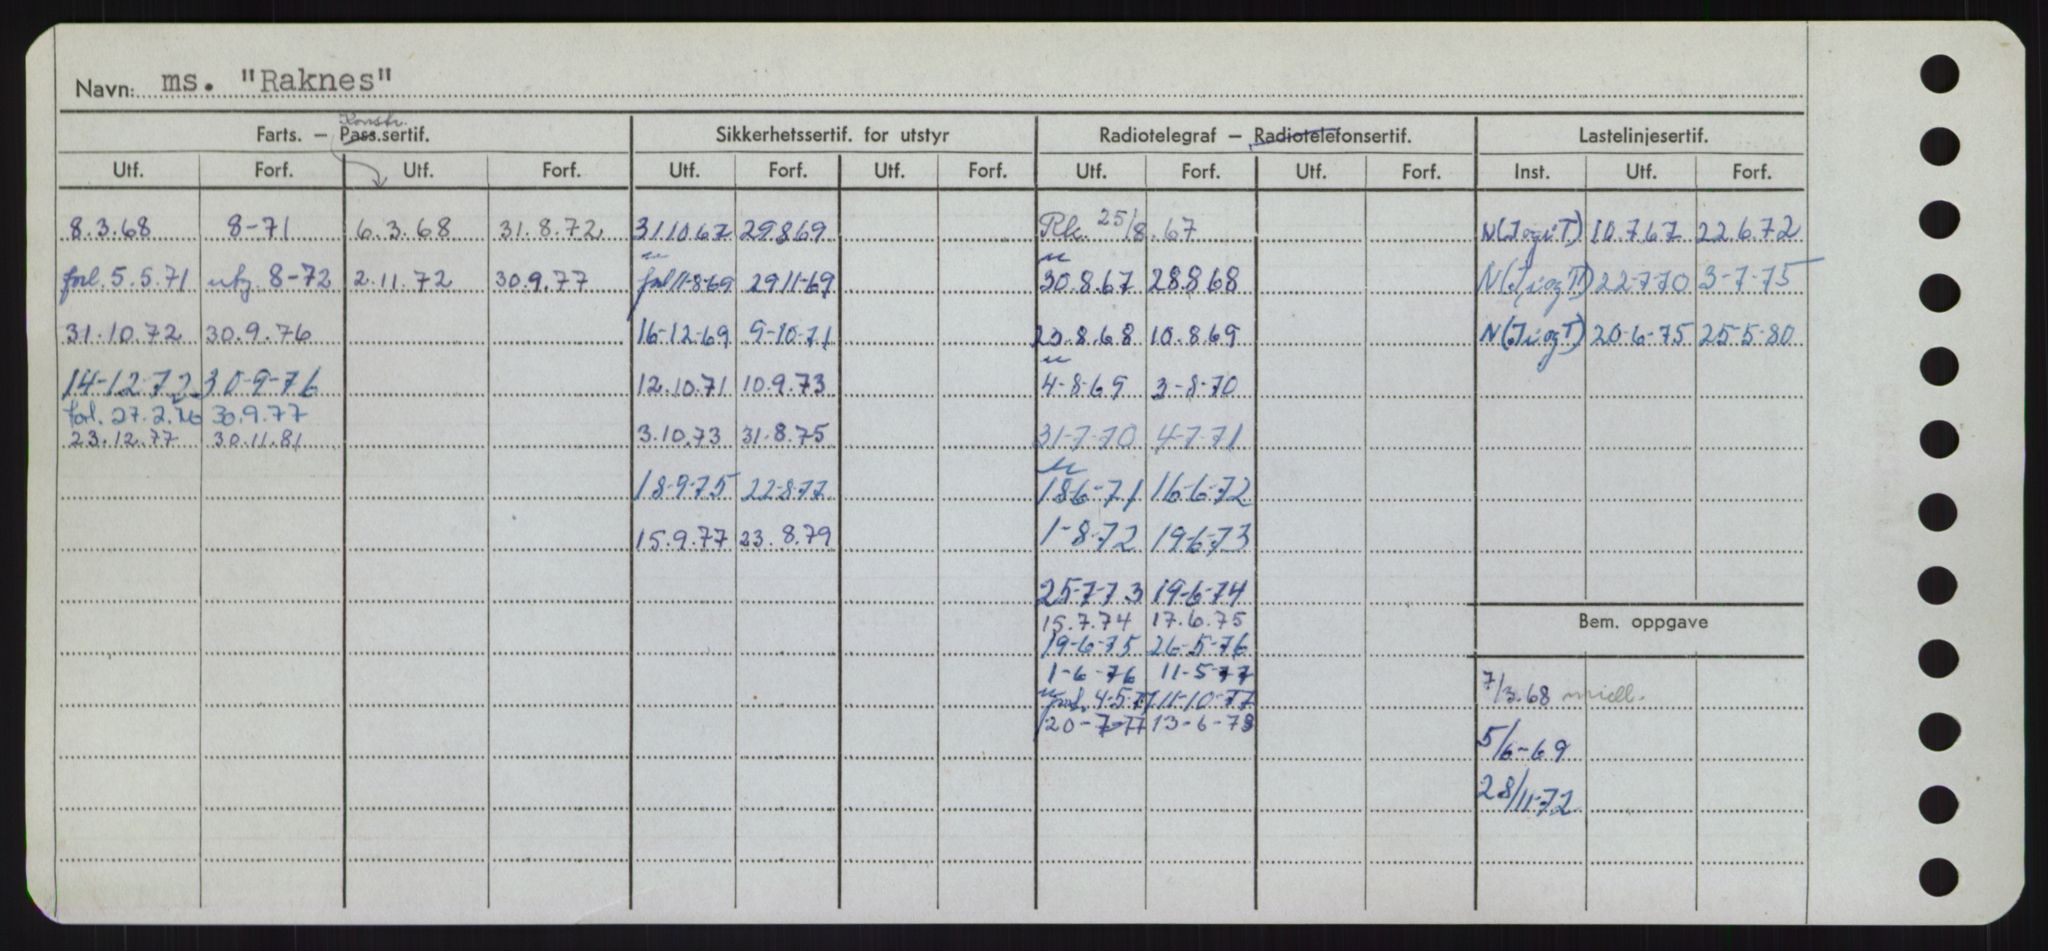 Navn: ms. "Raknes"
Konstr.
Farts. — Pass.sertif. Sikkerhetssertif. for utstyr Radiotelegraf — Radiotelefonsertif. Lastelinjesertif.
Utf. Forf. Utf. Forf. Utf. Forf. Utf. Forf. Utf. Forf. Utf. Forf. Inst. Utf. Forf.
8.3.68 8-71 6.3.68 31.8.72 31.10.67 29.8.69 Rk. 25/8.67 N(J og T) 10.7.67 22.6.72
forl. 5.5.71 8-72 2.11.72 30.9.77 forl 11-8-69 29 11-69 30.8.67 28.8.68 N(J i og T) 22-7-70 3-7-75
31.10.72 30.9.76 16-12-69 9-10-71 23.8.68 10.8.69 N(J i og T) 20-6-75 25-5-80
14-12-72 30-9-76 12.10.71 10.9.73 4-8-69 3-8-70
forl. 27.2.76 30.9.77
23.12.77 30.11.81 3.10.73 31.8.75 31-7-70 4-7-71
18-9-75 22-8-77 18-6-71 16-6-72
15.9.77 23.8.79 1-8-72 19-6-73
25-7-73 19-6-74
15.7.74 17.6.75
Bem. oppgave
19-6-75 26-5-76
1-6-76 11-5-77
7/3.68
forl. 4.5.77 11-10-77
20-7-77 13-6-78
5/6-69
28/11-72